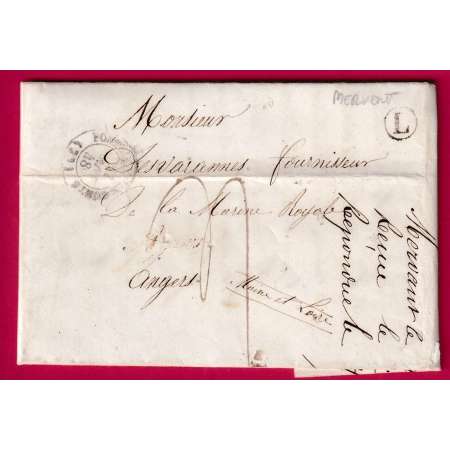 MERVENT
L
Monsieur
Desvarannes fournisseur
De la Marine Royale
Angers
Maine et Loire
Mervant le
Recue le
Repondue le